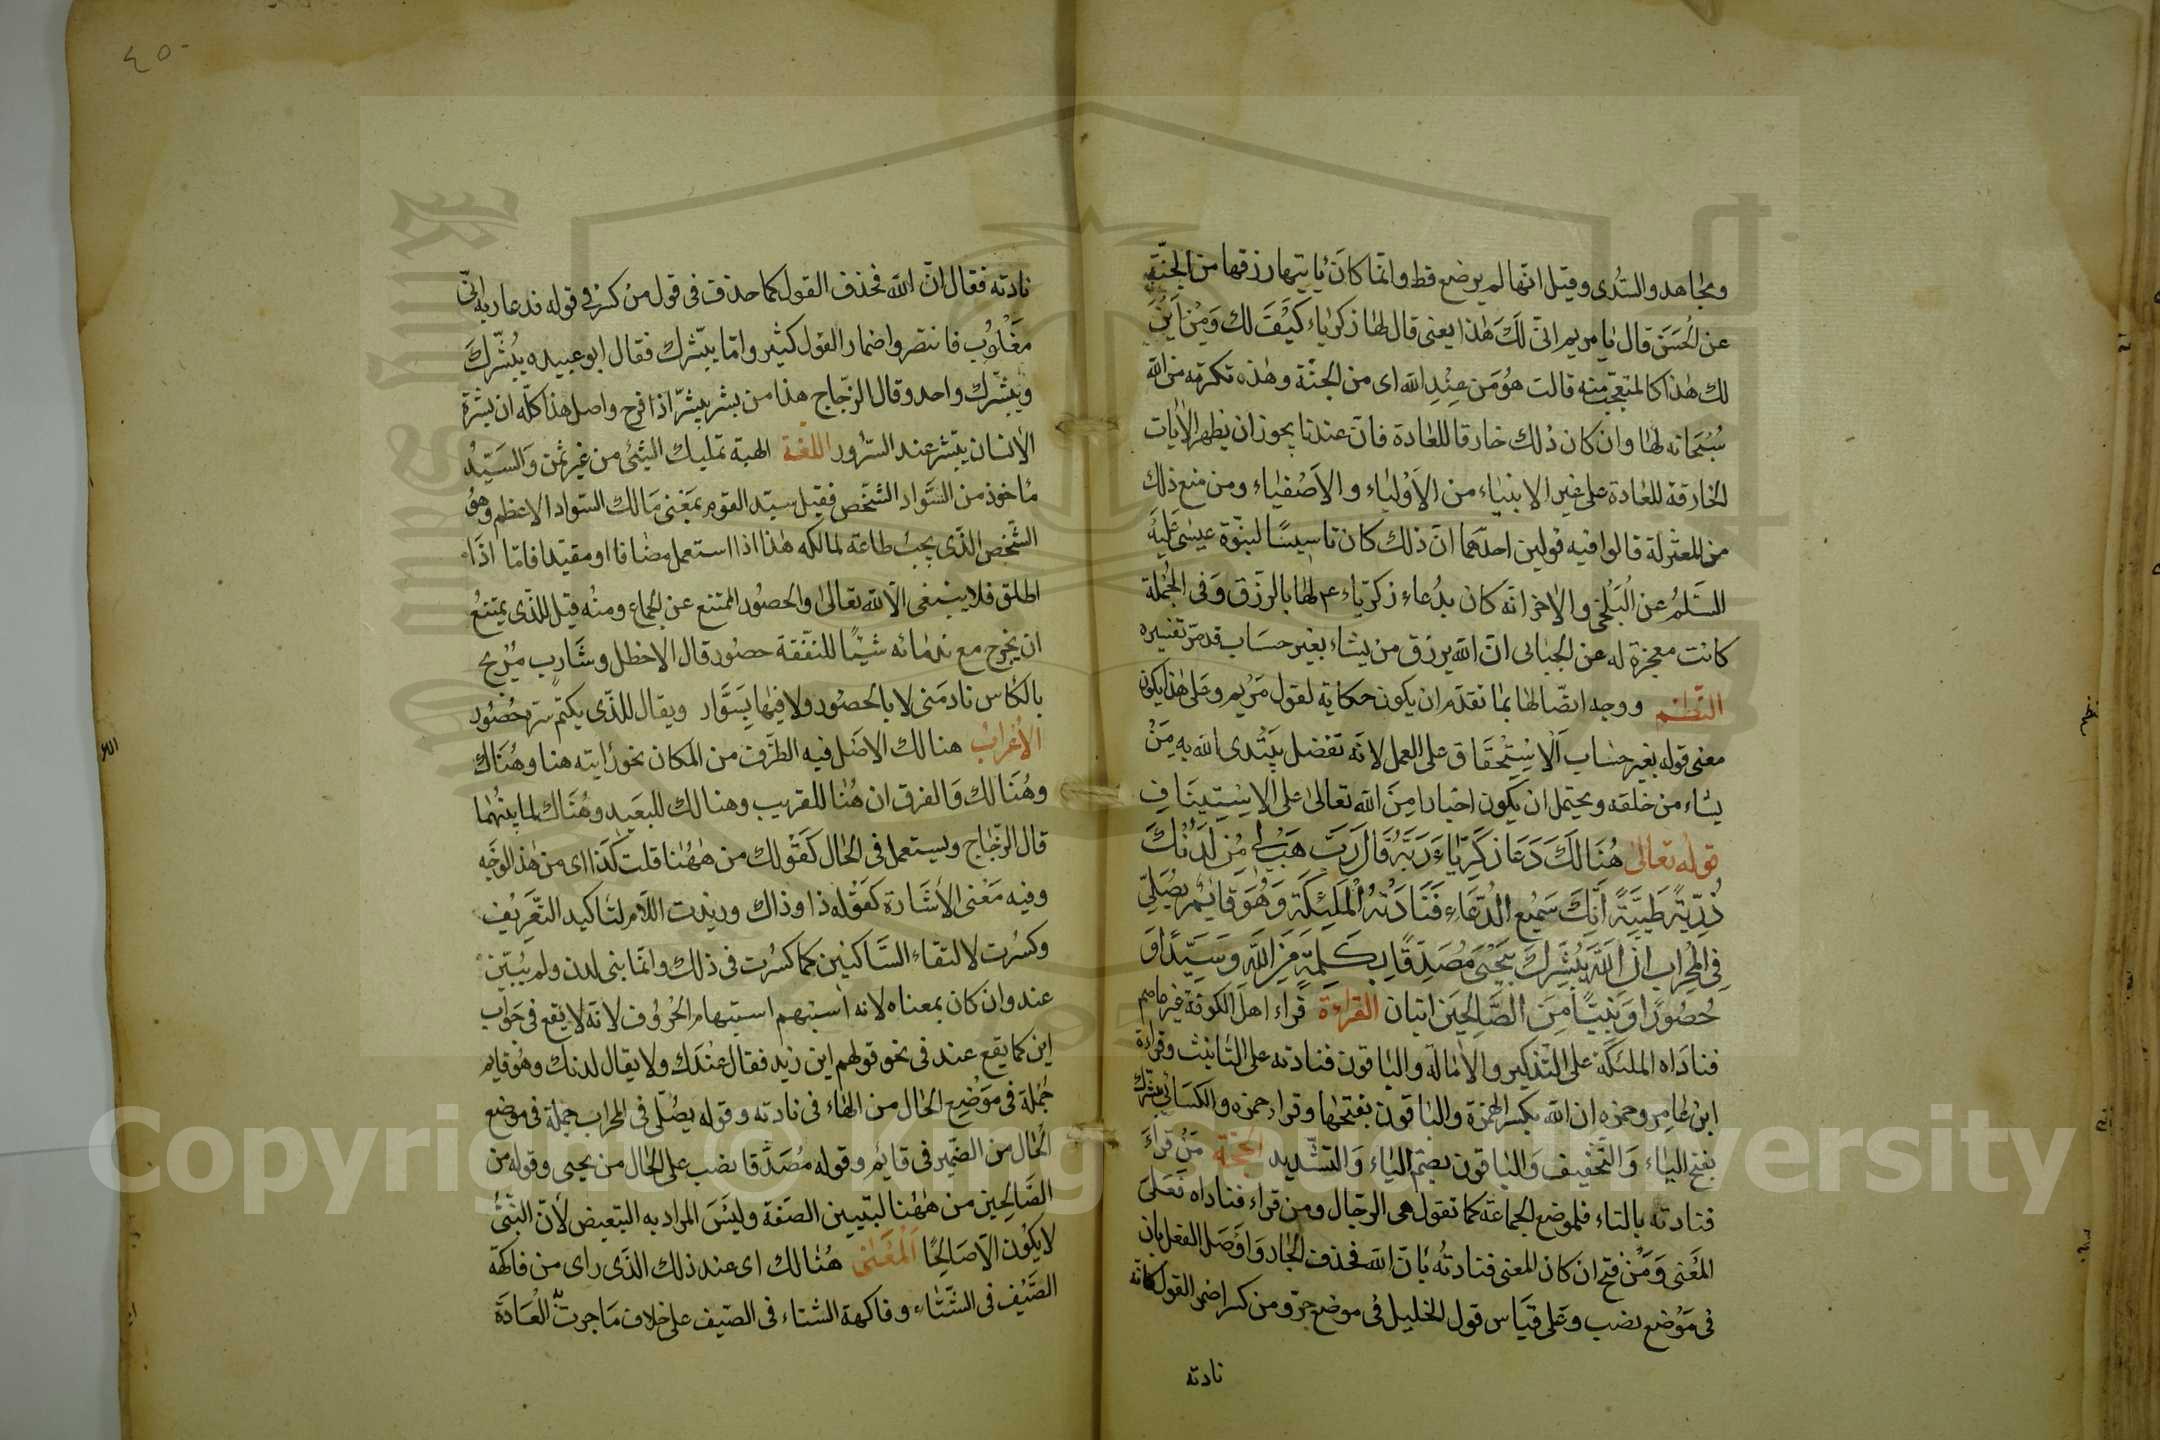 ومجاهد والسدى وقيل انها لم يرضع قط وانما كان ياتيها رزقها من الجنة
عن الحسن قال يا مريم انى لك هذا يعنى قال لها زكرياء كيف لك ومن اين
لك هذا كالمتعجب منه قالت هو من عند الله اى من الجنة وهذه تكرمة من الله
سبحانه لها وان كان ذلك خارقا للعادة فان عندنا يجوز ان يظهر الايات
الخارقة للعادة على غير الانبياء من الاولياء والاصفياء ومن منع ذلك
من المعتزلة قالوا فيه قولين احدهما ان ذلك كان تاسيسا لنبوة عيسى عليه
السلم عن البلخى والاخر انه كان بدعاء زكرياء ع لها بالرزق وفى الجملة
كانت معجزة له عن الجبائى ان الله يرزق من يشاء بغير حساب قد مر تفسيره
النظم ووجه اتصالها بما تقدم ان يكون حكاية لقول مريم وعلى هذا يكون
معنى قوله بغير حساب الاستحقاق على العمل لانه تفضل يبتدى الله به من
يشاء من خلقه ويحتمل ان يكون اخبارا من الله تعالى على الاستيناف
قوله تعالى هنالك دعا زكرياء ربه قال رب هب لى من لدنك
ذرية طيبة انك سميع الدعاء فنادته الملئكة وهو قائم يصلى
فى المحراب ان الله يبشرك بيحيى مصدقا بكلمة من الله وسيدا و
حصورا ونبيا من الصالحين ايتان القراءة قراء اهل الكوفة غير عاصم
فناداه الملئكة على التذكير والامالة والباقون فنادته على التانيث وقراءة
ابن عامر وحمزه ان الله بكسر الهمزة والباقون بفتحها وقراء حمزه والكسائى يبشرك
بفتح الياء والتخفيف والباقون بضم الياء والتشديد الحجة من قراء
فنادته بالتاء فلموضع الجماعة كما تقول هى الرجال ومن قراء فناداه فعلى
المعنى ومن فتح ان كان المعنى فنادته بان الله فحذف الجار واوصل الفعل بان
فى موضع نصب وعلى قياس قول الخليل فى موضع جر ومن كسر اضمر القول كانه
نادته
٤٥٠
نادته فقال ان الله فحذف القول كما حذف فى قول من كسر فى قوله فدعا ربه انى
مغلوب فانتصر واضمار القول كثير واما يبشرك فقال ابو عبيده يبشرك
ويبشرك واحد وقال الزجاج هذا من بشر يبشر اذا فرح واصل هذا كله ان بشرة
الانسان يتبشر عند السرور اللغة الهبة تمليك الشئ من غير ثمن والسيد
ماخوذ من السواد الشخص فقيل سيد القوم بمعنى مالك السواد الاعظم وهو
الشخص الذى يجب طاعة لمالكه هذا اذا استعمل مضافا او مقيدا فاما اذا
اطلق فلا ينبغى الا لله تعالى والحصور الممتنع عن الجماع ومنه قيل للذى يمتنع
ان يخرج مع ندمائه شيئا للنفقة حصور قال الاخطل وشارب مربح
بالكاس نادمنى لا بالحصور ولا فيها بسوار ويقال للذى يكتم سره حصور
الاعراب هنالك الاصل فيه الظرف من المكان نحو رايته هنا وهناك
وهنالك والفرق ان هنا للقريب وهنالك للبعيد وهناك لما بينهما
قال الزجاج ويستعمل فى الحال كقولك من ههنا قلت كذا اى من هذا الوجه
وفيه معنى الاشارة كقوله ذا وذاك وزيدت اللام لتاكيد التعريف
وكسرت لالتقاء الساكنين كما كسرت فى ذلك وانما بنى لدن ولم يبين
عند وان كان بمعناه لانه استبهم استبهام الحروف لانه لا يقع فى جواب
اين كما يقع عند فى نحو قولهم اين زيد فقال عندك ولا يقال لدنك وهو قايم
جملة فى موضع الحال من الهاء فى نادته وقوله يصلى فى المحراب جملة فى موضع
الحال من الضمير فى قايم وقوله مصدقا نصب على الحال من يحيى وقوله من
الصالحين من ههنا لتبيين الصفة وليس المراد به التبعيض لان النبى
لا يكون الا صالحا المعنى هنالك اى عند ذلك الذى راى من فاكهة
الصيف فى الشتاء وفاكهة الشتاء فى الصيف على خلاف ما جرت به العادة
Copyright © King Saud University